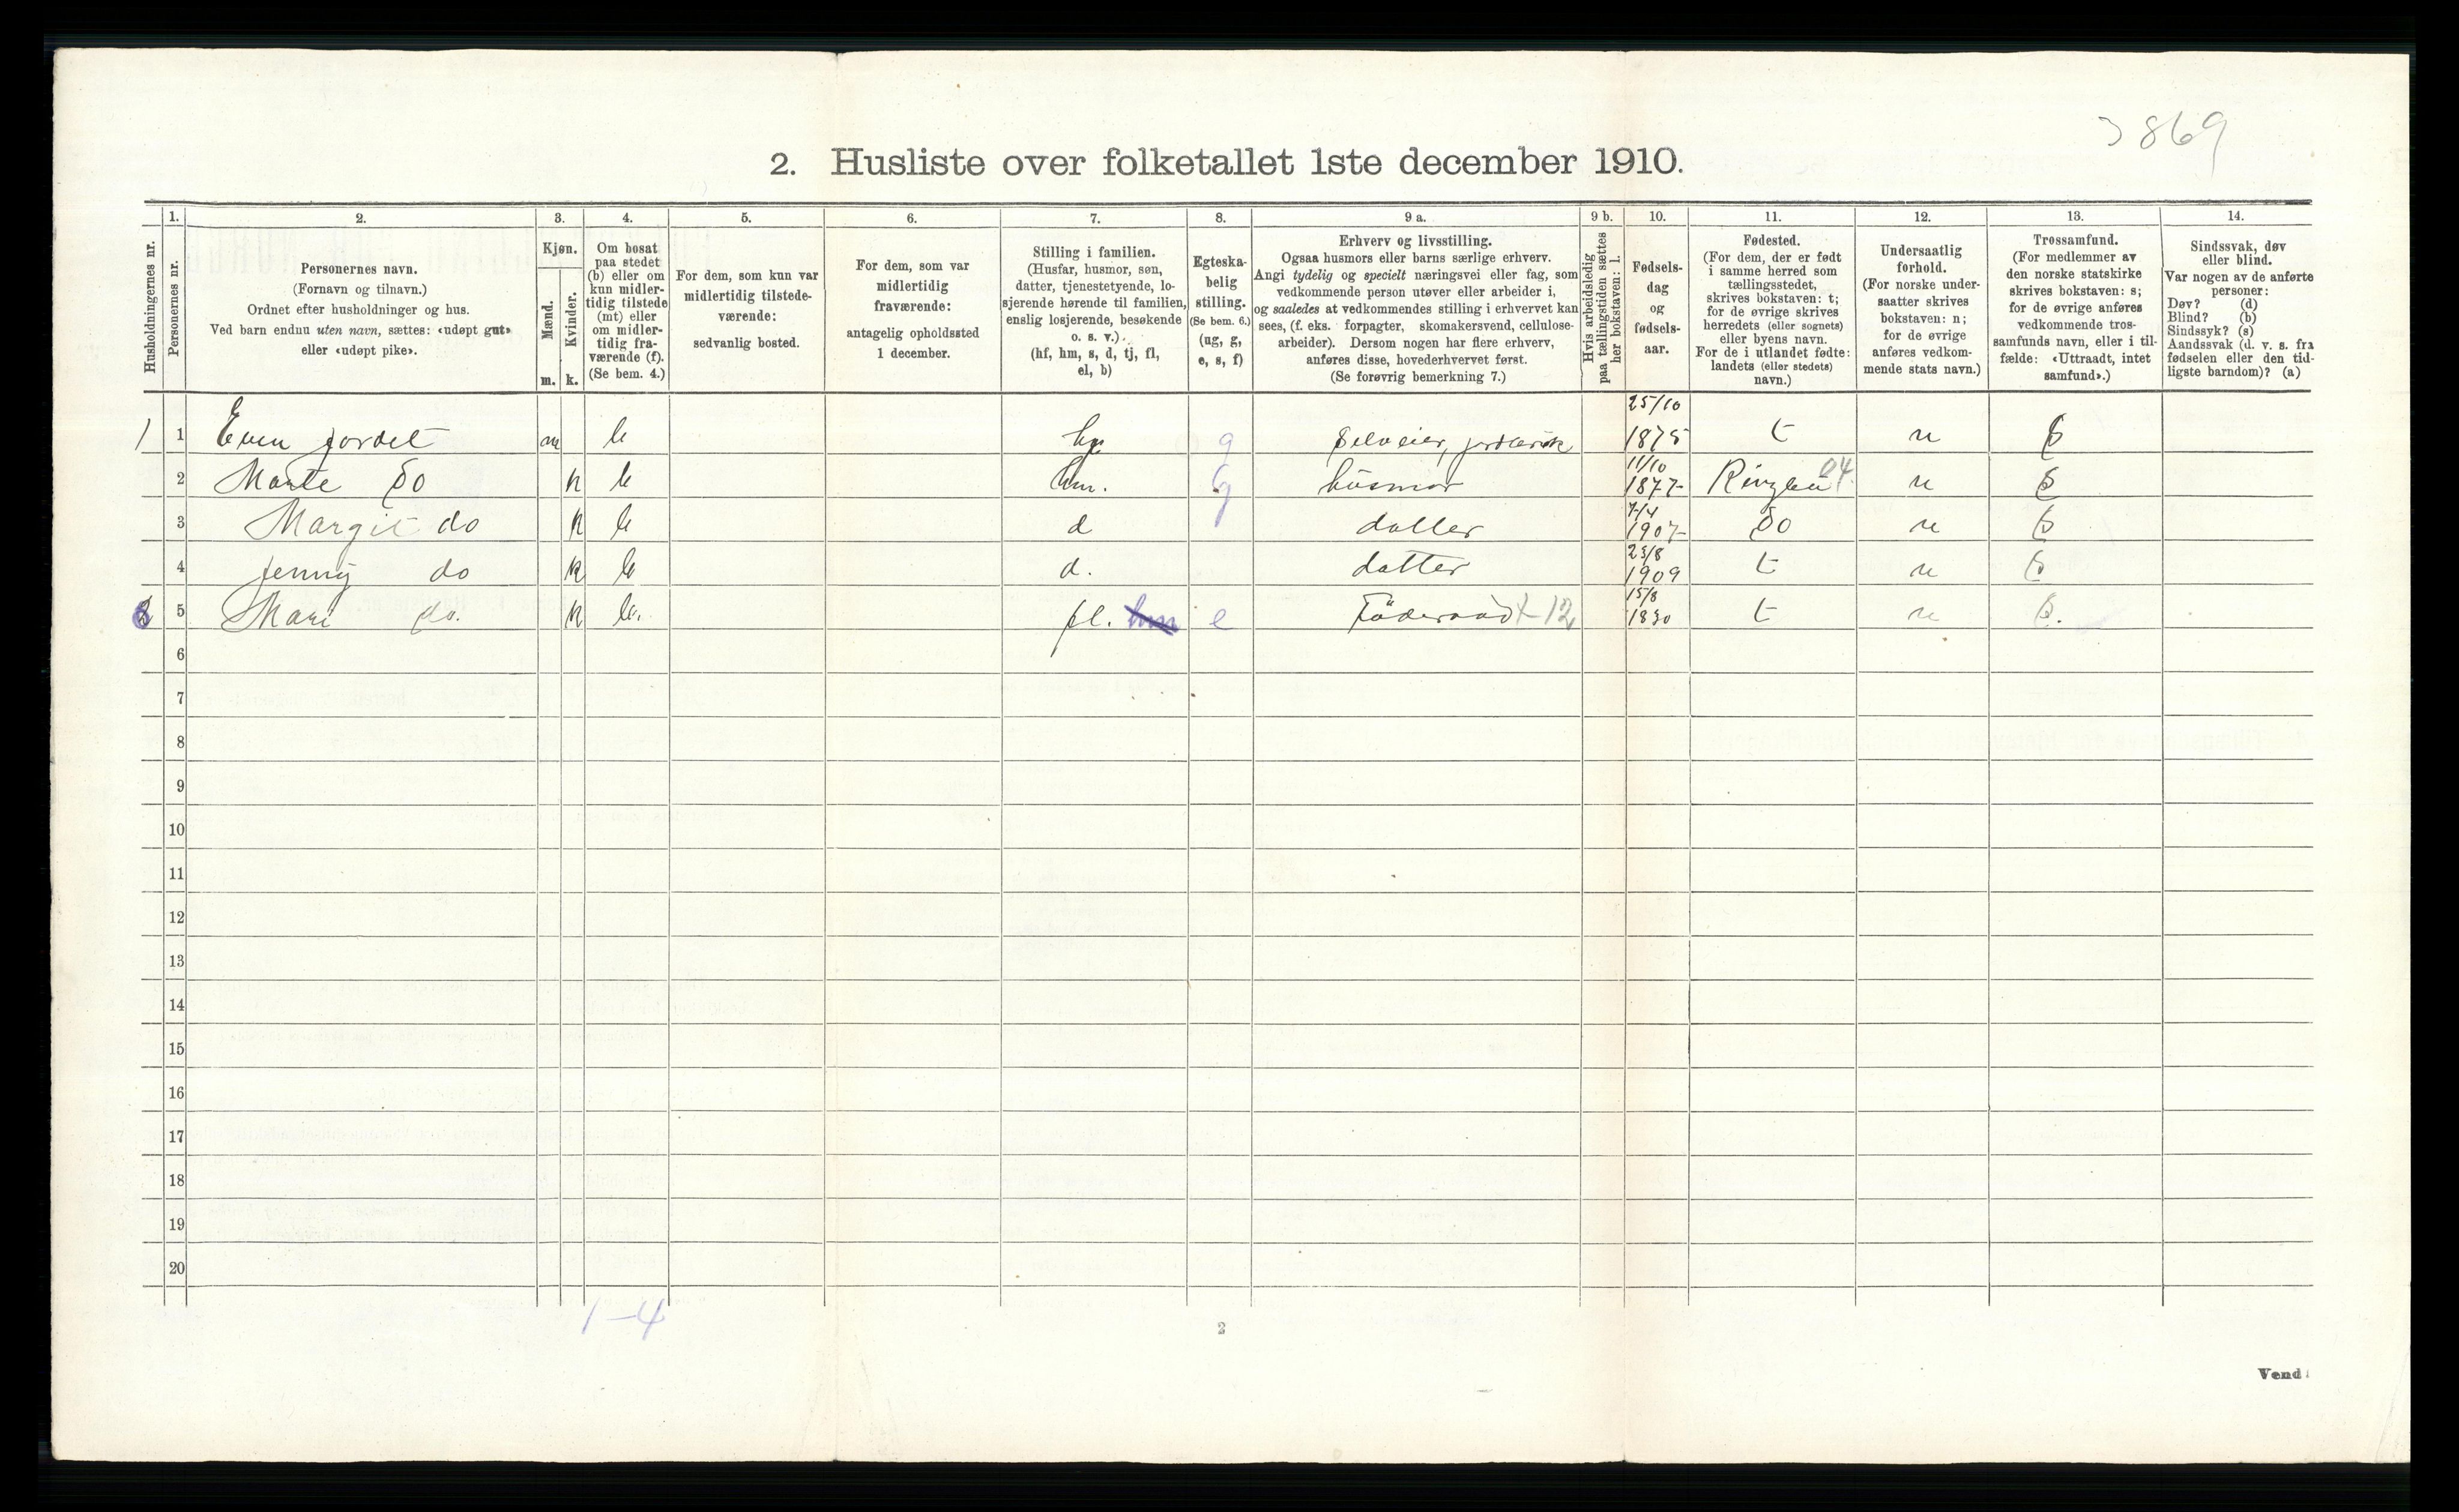 3869
2. Husliste over folketallet 1ste december 1910.
Husholdningernes nr.
1. Personernes nr.
2. Personernes navn.
(Fornavn og tilnavn.)
Ordnet efter husholdninger og hus.
Ved barn endnu uten navn, sættes: «udøpt gut»
eller «udøpt pike».
3. Kjøn.
Mænd. m.
Kvinder. k.
4. Om bosat
paa stedet
(b) eller om
kun midler-
tidig tilstede
(mt) eller
om midler-
tidig fra-
værende (f).
(Se bem. 4.)
5. For dem, som kun var
midlertidig tilstede-
værende:
sedvanlig bosted.
6. For dem, som var
midlertidig
fraværende:
antagelig opholdssted
1 december.
7. Stilling i familien.
(Husfar, husmor, søn,
datter, tjenestetyende, lo-
sjerende hørende til familien,
enslig losjerende, besøkende
o. s. v.)
(hf, hm, s, d, tj, fl,
el, b)
8. Egteska-
belig
stilling.
(Se bem. 6.)
(ug, g,
e, s, f)
9 a. Erhverv og livsstilling.
Ogsaa husmors eller barns særlige erhverv.
Angi tydelig og specielt næringsvei eller fag, som
vedkommende person utøver eller arbeider i,
og saaledes at vedkommendes stilling i erhvervet kan
sees, (f. eks. forpagter, skomakersvend, cellulose-
arbeider). Dersom nogen har flere erhverv,
anføres disse, hovederhvervet først.
(Se forøvrig bemerkning 7.)
9 b. Hvis arbeidsledig
paa tællingstiden sættes
her bokstaven: l.
10. Fødsels-
dag
og
fødsels-
aar.
11. Fødested.
(For dem, der er født
i samme herred som
tællingsstedet,
skrives bokstaven: t;
for de øvrige skrives
herredets (eller sognets)
eller byens navn.
For de i utlandet fødte:
landets (eller stedets)
navn.)
12. Undersaatlig
forhold.
(For norske under-
saatter skrives
bokstaven: n;
for de øvrige
anføres vedkom-
mende stats navn.)
13. Trossamfund.
(For medlemmer av
den norske statskirke
skrives bokstaven: s;
for de øvrige anføres
vedkommende tros-
samfunds navn, eller i til-
fælde: «Uttraadt, intet
samfund».)
14. Sindssvak, døv
eller blind.
Var nogen av de anførte
personer:
Døv? (d)
Blind? (b)
Sindssyk? (s)
Aandssvak (d. v. s. fra
fødselen eller den tid-
ligste barndom)? (a)
1 1 Even Jordet m b hf g Selveier, 25/10 1875 t n S
2 Marte Do k b hm. g husmor 11/10 1877 Ringbu 04. n S
3 Margit do k b d datter 7/4 1907 Do n S
4 Jenny do k b d. datter 23/8 1909 t n S
2 5 Mari do. k b. fl. hm e Föderaad +12 15/8 1830 t n S.
6
7
8
9
10
11
12
13
14
15
16
17
18
19
20
1-4
2
Vend!